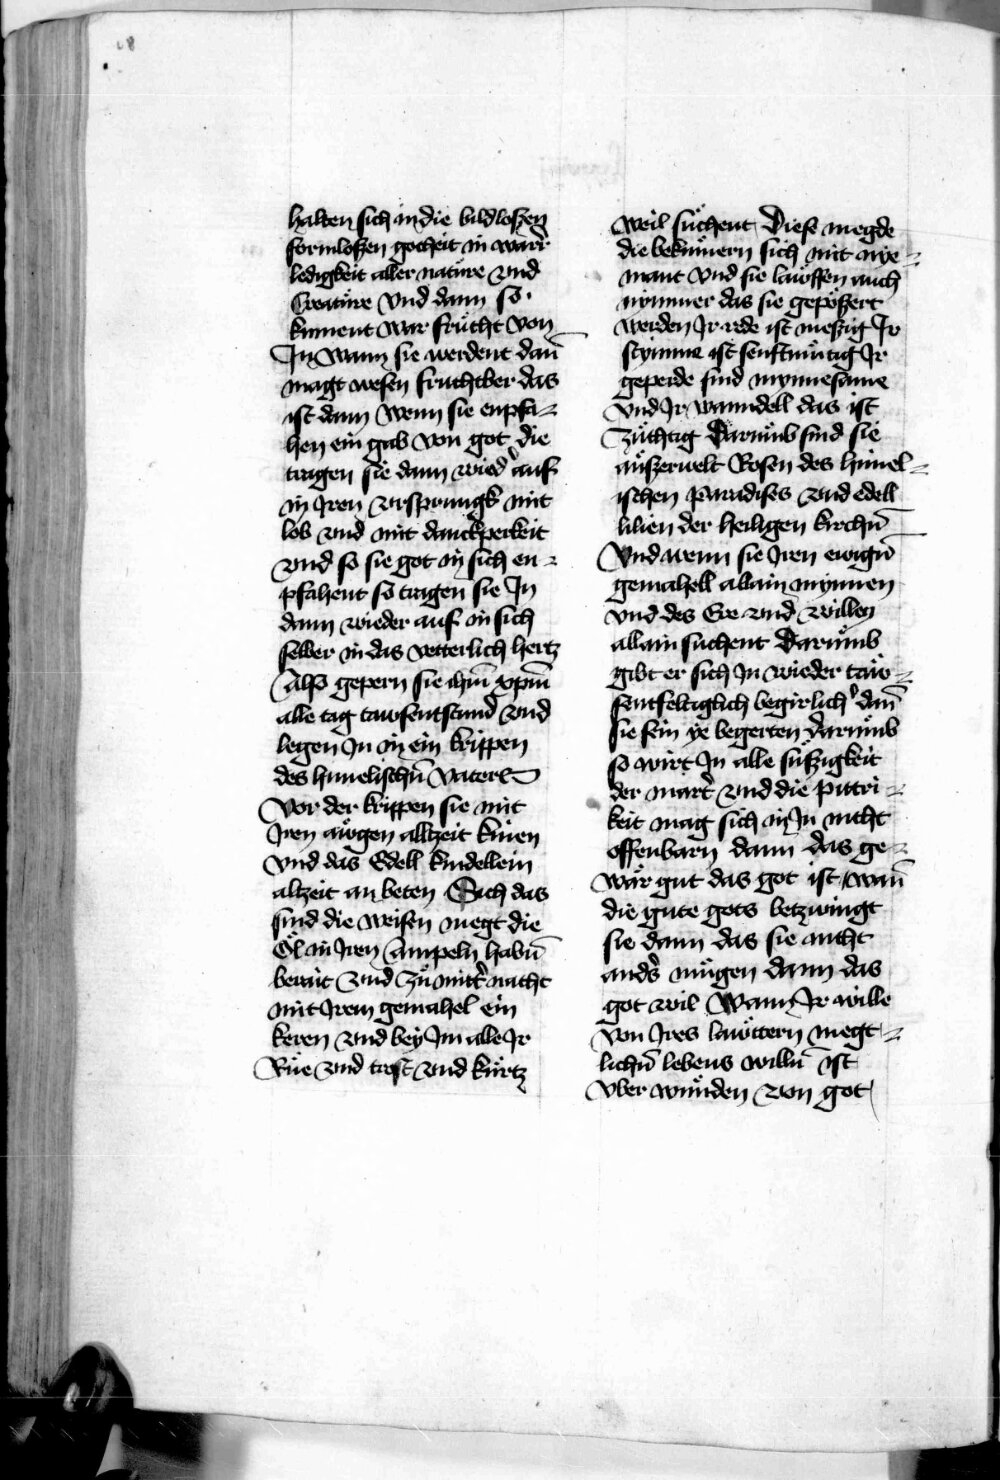 halten sich in die bildloßen
formloßen gotheit in warr
ledigkeit aller natúre vnd
Creatúre Vnd dann so
kument war frúcht von
In Wann sie werdent dan̄
magt wesen fruchtber das
ist dann Wenn sie enpfa⸗
hen ein gab von got die
tragen sie dann wied̾ auf
in Iren vrsprungk mit
lob vnd mit danckperkeit
vnd so sie got in sich en⸗
pfahent so tragen sie In
dann wieder auf in sich
selber in das vetterlich hertz
Also gepern sie ihm̄ xpm̄
alle tag tawsentstund vnd
legen In in ein krippen
des himelischn̄ Vaters
Vor der krippen sie mit
Iren aw̋gen allzeit knien
vnd das Edell kindellein
altzeit an beten Sich das
sind die weisen megt die
Öl in Iren Ampeln habn̄
berait vnd zů mitt̾nacht
mit Irem gemahel ein
keren vnd bey Im alle Ir
Růe vnd trost vnd kúrtz
Weil súchent Diese megde
die bekúmern sich mit nye⸗
mant Vnd sie lawffen auch
nymmer das sie gepößert
werden Ir rede ist meßzig Ir
stymme ist senftmútig Ir
geperde sind mynnesame
Vnd Ir wanndell das ist
Zúchtig Darúmb sind sie
außzerwelt Rosen des himel⸗
ischen Paradises vnd edell
lilien der heiligen kirchn̄
Vnd wenn sie Iren ewign̄
gemahell allain mynnen
vnd des Ere vnd willen
allain suchent Darúmb
gibt er sich In wieder taw⸗
sentfeltiglich begirlich̾ dan̄
sie sein ye begerten darúmb
so wirt In alle súßzigkeit
der mart̾ vnd die pittri⸗
keit mag sich in In nicht
offenbarn dann das ge⸗
wár gut das got ist / wan̄
die gute gots betzwingt
sie dann das sie nicht
and̾s múgen dann das
got wil Wann Ir wille
von Ires lawttern megt⸗
lichn̄ lebens willn̄ ist
vber wúnden von got /